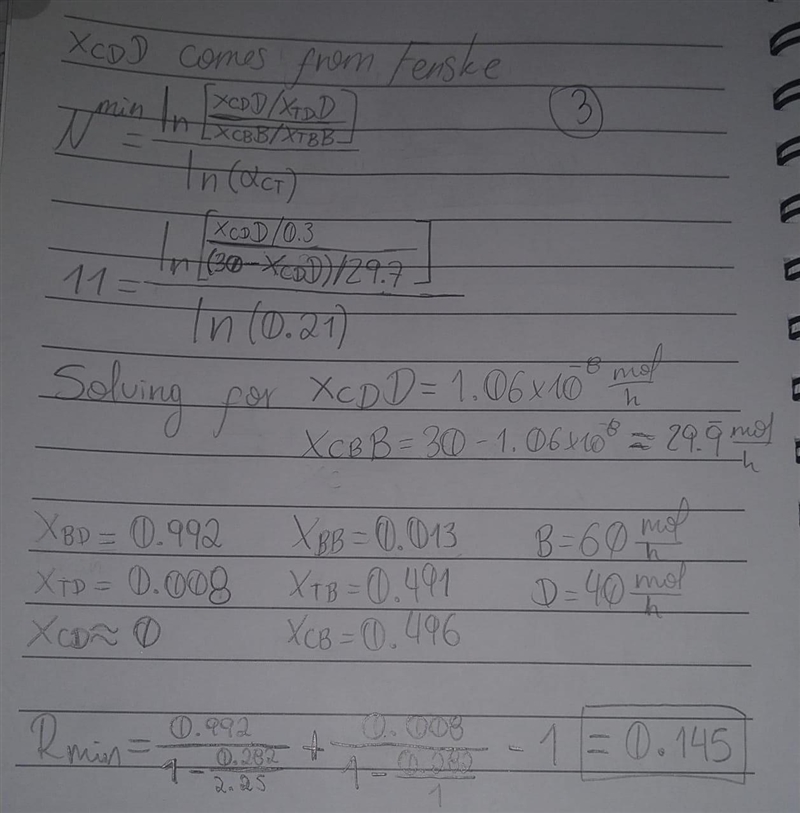 XCDD comes from Fenske
3
N^min = ln[(XCDD/XTDD)/(XCBB/XTBB)] / ln(αCT)
11 = ln[(XCDD/0.3)/((30-XCDD)/29.7)] / ln(0.21)
Solving for XCDD = 1.06x10^-8 mol/h
XCBB = 30 - 1.06x10^-8 ≈ 29.9̄ mol/h
XBD = 0.992 XBB = 0.013 B = 60 mol/h
XTD = 0.008 XTB = 0.491 D = 40 mol/h
XCD ≈ 0 XCB = 0.496
Rmin = 0.992/(1 - 0.282/2.25) + 0.008/(1 - 0.282/1) - 1 = 0.145